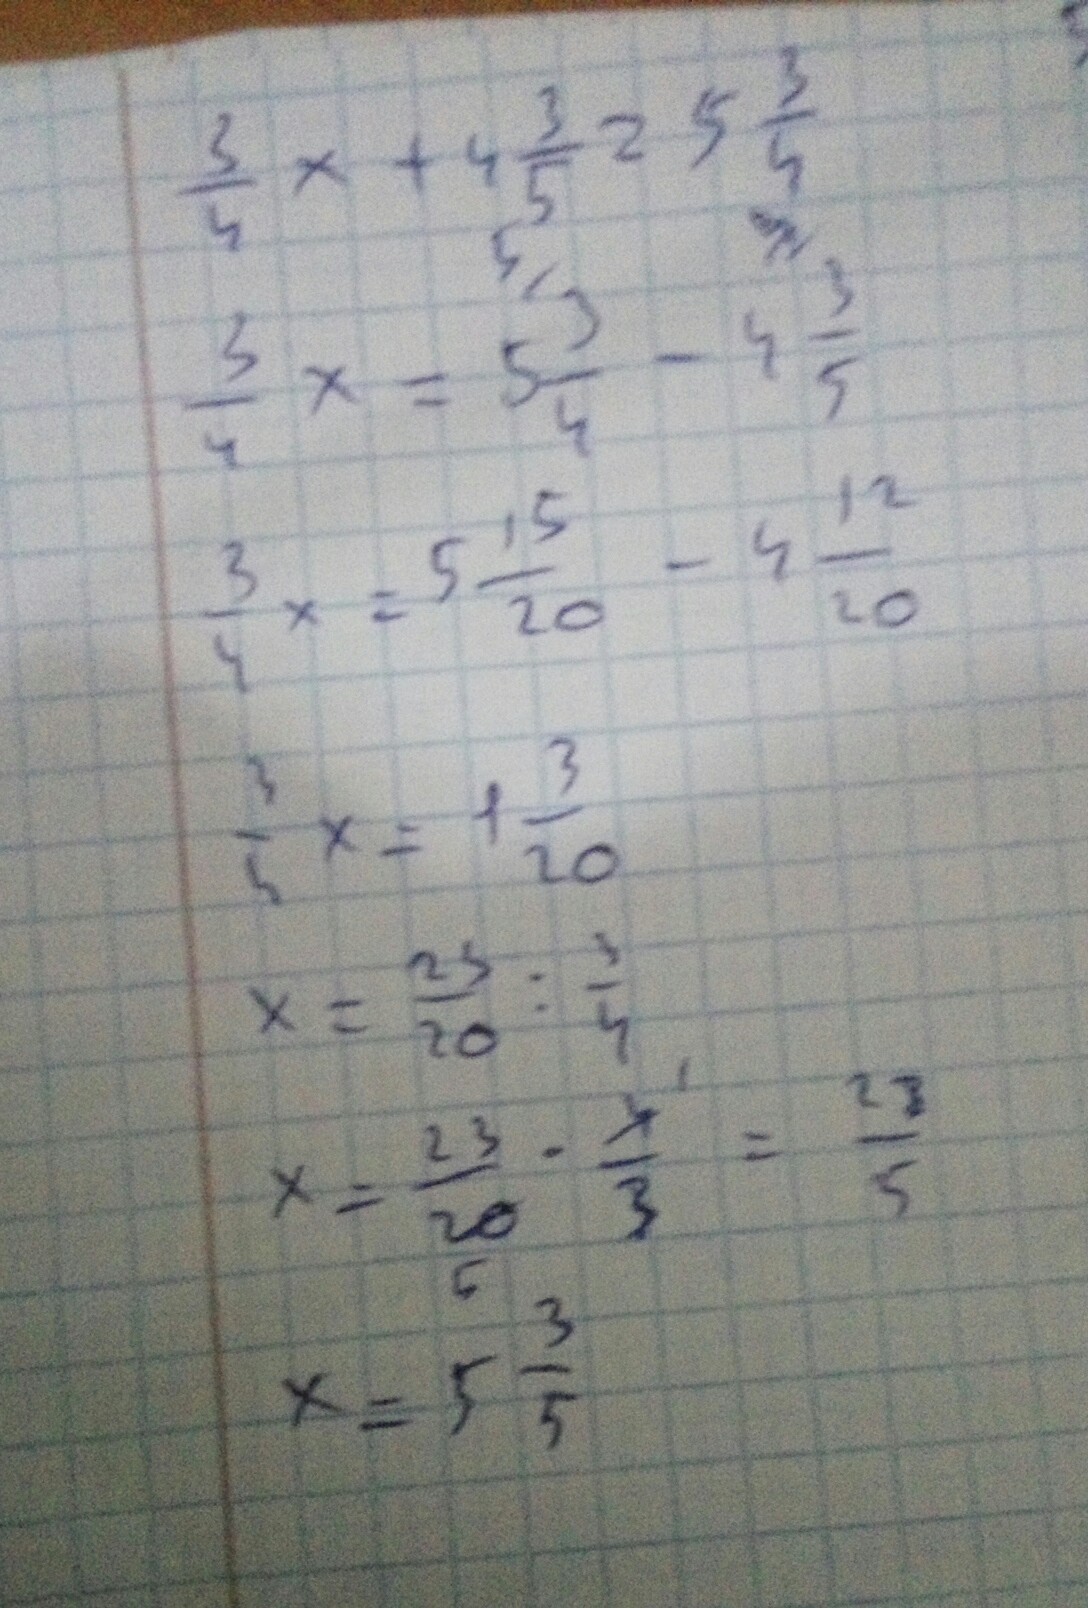 3/4 x + 4 3/5 = 5 3/4
3/4 x = 5 3/4 - 4 3/5
3/4 x = 5 15/20 - 4 12/20
3/4 x = 1 3/20
x = 23/20 : 3/4
x = 23/20 · 4/3 = 23/5
x = 5 3/5